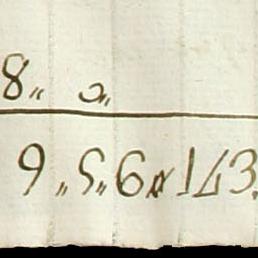 8,, 0,,
6,, 5,, 9,, 143.